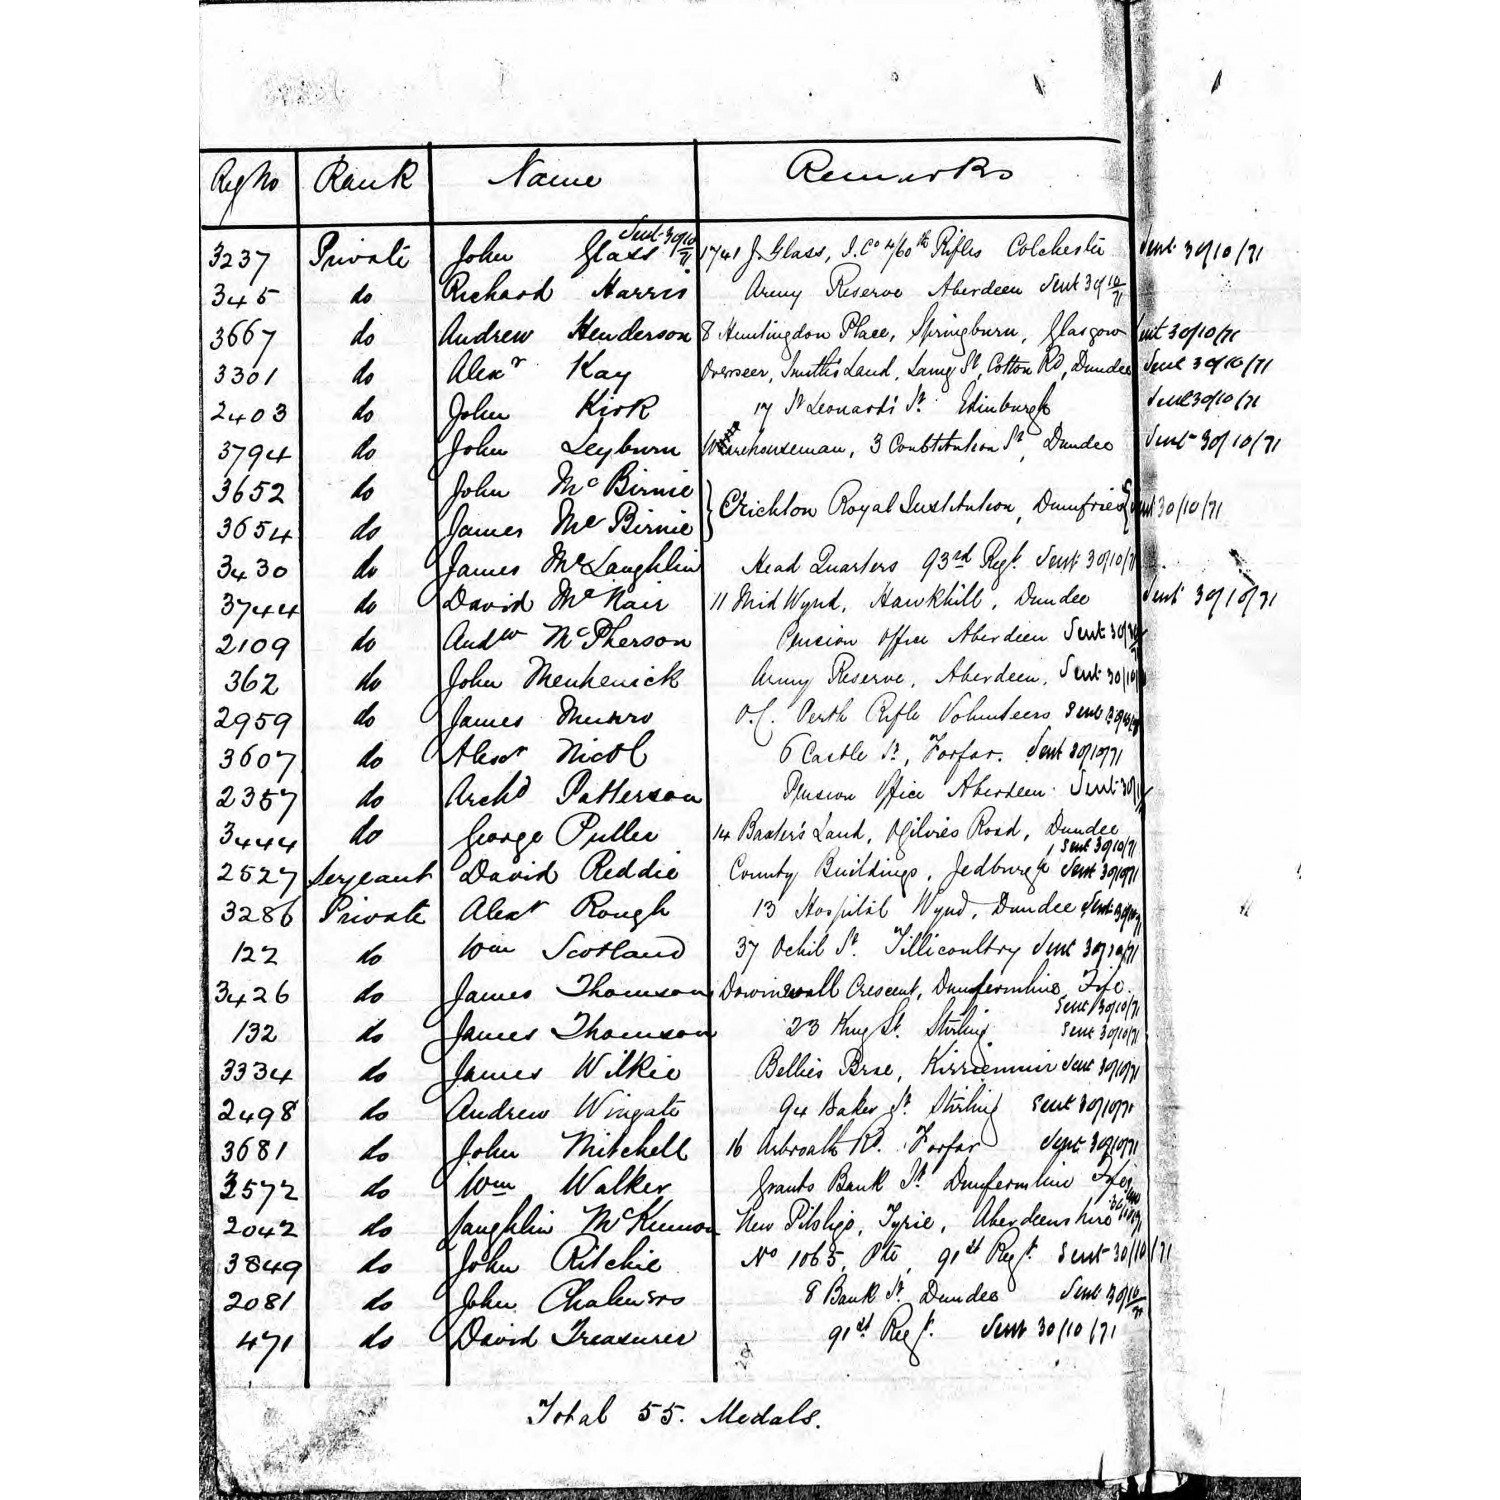 Reg No Rank Name Remarks
3237 Private John Glass Sent 30/10/71 1741 J. Glass, I. Co 4/60th Rifles Colchester Sent 30/10/71
345 do Richard Harris Army Reserve Aberdeen Sent 30/10/71
3667 do Andrew Henderson 8 Huntingdon Place, Springburn, Glasgow Sent 30/10/71
3301 do Alexr Kay Overseer, Smith's Land, Laing St, Cotton Rd, Dundee Sent 30/10/71
2403 do John Kirk 17 St Leonard's St. Edinburgh Sent 30/10/71
3794 do John Leyburn Warehouseman, 3 Constitution St, Dundee Sent 30/10/71
3652 do John McBirnie } Crichton Royal Institution, Dumfries { Sent 30/10/71
3654 do James McBirnie
3430 do James McLaughlin Head Quarters 93rd Regt. Sent 30/10/71
3744 do David McNair 11 Mid Wynd, Hawkhill, Dundee Sent 30/10/71
2109 do Andw McPherson Pension Office Aberdeen Sent 30/10/71
362 do John Menhenick Army Reserve, Aberdeen. Sent 30/10
2959 do James Munro O.C. Perth Rifle Volunteers Sent
3607 do Alexr Nicol 6 Castle St, Forfar. Sent 30/10/71
2357 do Archd Patterson Pension Office Aberdeen. Sent 30/
3444 do George Puller 14 Baxter's Land, Ogilvies Road, Dundee
Sent 30/10/71
2527 Serjeant David Reddie County Buildings, Jedburgh Sent 30/10/71
3286 Private Alexr Rough 13 Hospital Wynd, Dundee Sent 30/10/71
122 do Wm Scotland 37 Ochil St. Tillicoultry Sent 30/10/71
3426 do James Thomson Crescent, Dunfermline, Fife.
Sent 30/10/71
132 do James Thomson 23 King St. Stirling. Sent 30/10/71
3334 do James Wilkie Bellies Brae, Kirriemuir Sent 30/10/71
2498 do Andrew Wingate 94 Baker St. Stirling Sent 30/10/71
3681 do John Mitchell 16 Arbroath Rd. Forfar Sent 30/10/71
3572 do Wm Walker Grants Bank St Dunfermline Fife
2042 do Laughlin McKinnon New Pitsligo, Tyrie, Aberdeenshire
3849 do John Ritchie No 1065, Pte, 91st Regt. Sent 30/10/71
2081 do John Chalmers 8 Bank St. Dundee Sent 30/10/71
471 do David Treasurer 91st Regt. Sent 30/10/71
Total 55. Medals.